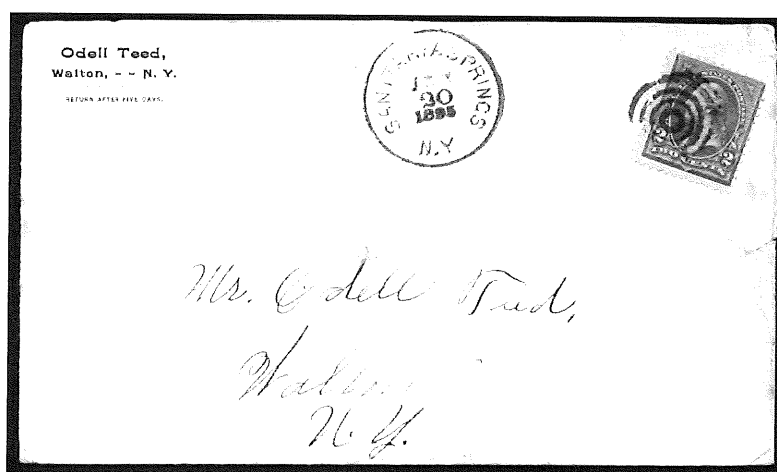 Odell Teed,
Walton, - - N. Y.
RETURN AFTER FIVE DAYS.
SANITARIA SPRINGS
20
1895
N.Y
TWO CENTS
Mr. Odell Teed,
Walton
N. Y.